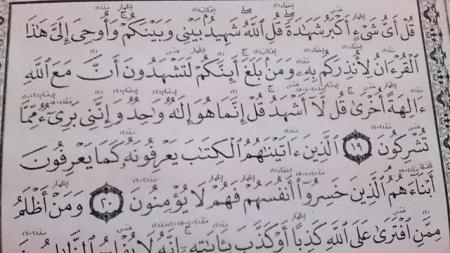 قُلْ أَىُّ شَىْءٍ أَكْبَرُ شَهَٰدَةً قُلِ ٱللَّهُ شَهِيدٌۢ بَيْنِى وَبَيْنَكُمْ وَأُوحِىَ إِلَىَّ هَٰذَا
ٱلْقُرْءَانُ لِأُنذِرَكُم بِهِۦ وَمَنۢ بَلَغَ أَئِنَّكُمْ لَتَشْهَدُونَ أَنَّ مَعَ ٱللَّهِ
ءَالِهَةً أُخْرَىٰ قُل لَّآ أَشْهَدُ قُلْ إِنَّمَا هُوَ إِلَٰهٌ وَٰحِدٌ وَإِنَّنِى بَرِىٓءٌ مِّمَّا
تُشْرِكُونَ ١٩ ٱلَّذِينَ ءَاتَيْنَٰهُمُ ٱلْكِتَٰبَ يَعْرِفُونَهُۥ كَمَا يَعْرِفُونَ
أَبْنَآءَهُمُ ٱلَّذِينَ خَسِرُوٓا۟ أَنفُسَهُمْ فَهُمْ لَا يُؤْمِنُونَ ٢٠ وَمَنْ أَظْلَمُ
مِمَّنِ ٱفْتَرَىٰ عَلَى ٱللَّهِ كَذِبًا أَوْ كَذَّبَ بِـَٔايَٰتِهِۦٓ إِنَّهُۥ لَا يُفْلِحُ ٱلظَّٰلِمُونَ